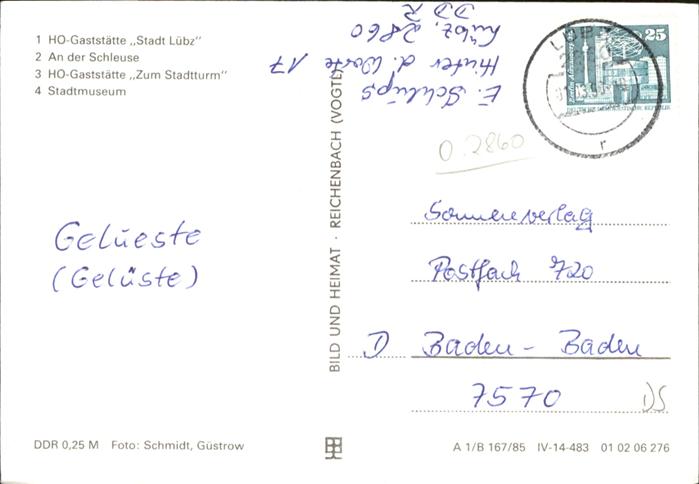 1 HO-Gaststätte „Stadt Lübz"
2 An der Schleuse
3 HO-Gaststätte „Zum Stadtturm"
4 Stadtmuseum
E. Schlüps
Hinter d. Worte 17
Lübz, 2860
DDR
25
LÜBZ
2860
r
O 2860
Gelueste
(Gelüste)
BILD UND HEIMAT · REICHENBACH (VOGTL)
Sonnenverlag
Postfach 720
D Baden - Baden
7570
DS
DDR 0,25 M Foto: Schmidt, Güstrow
A 1/B 167/85 IV-14-483 01 02 06 276